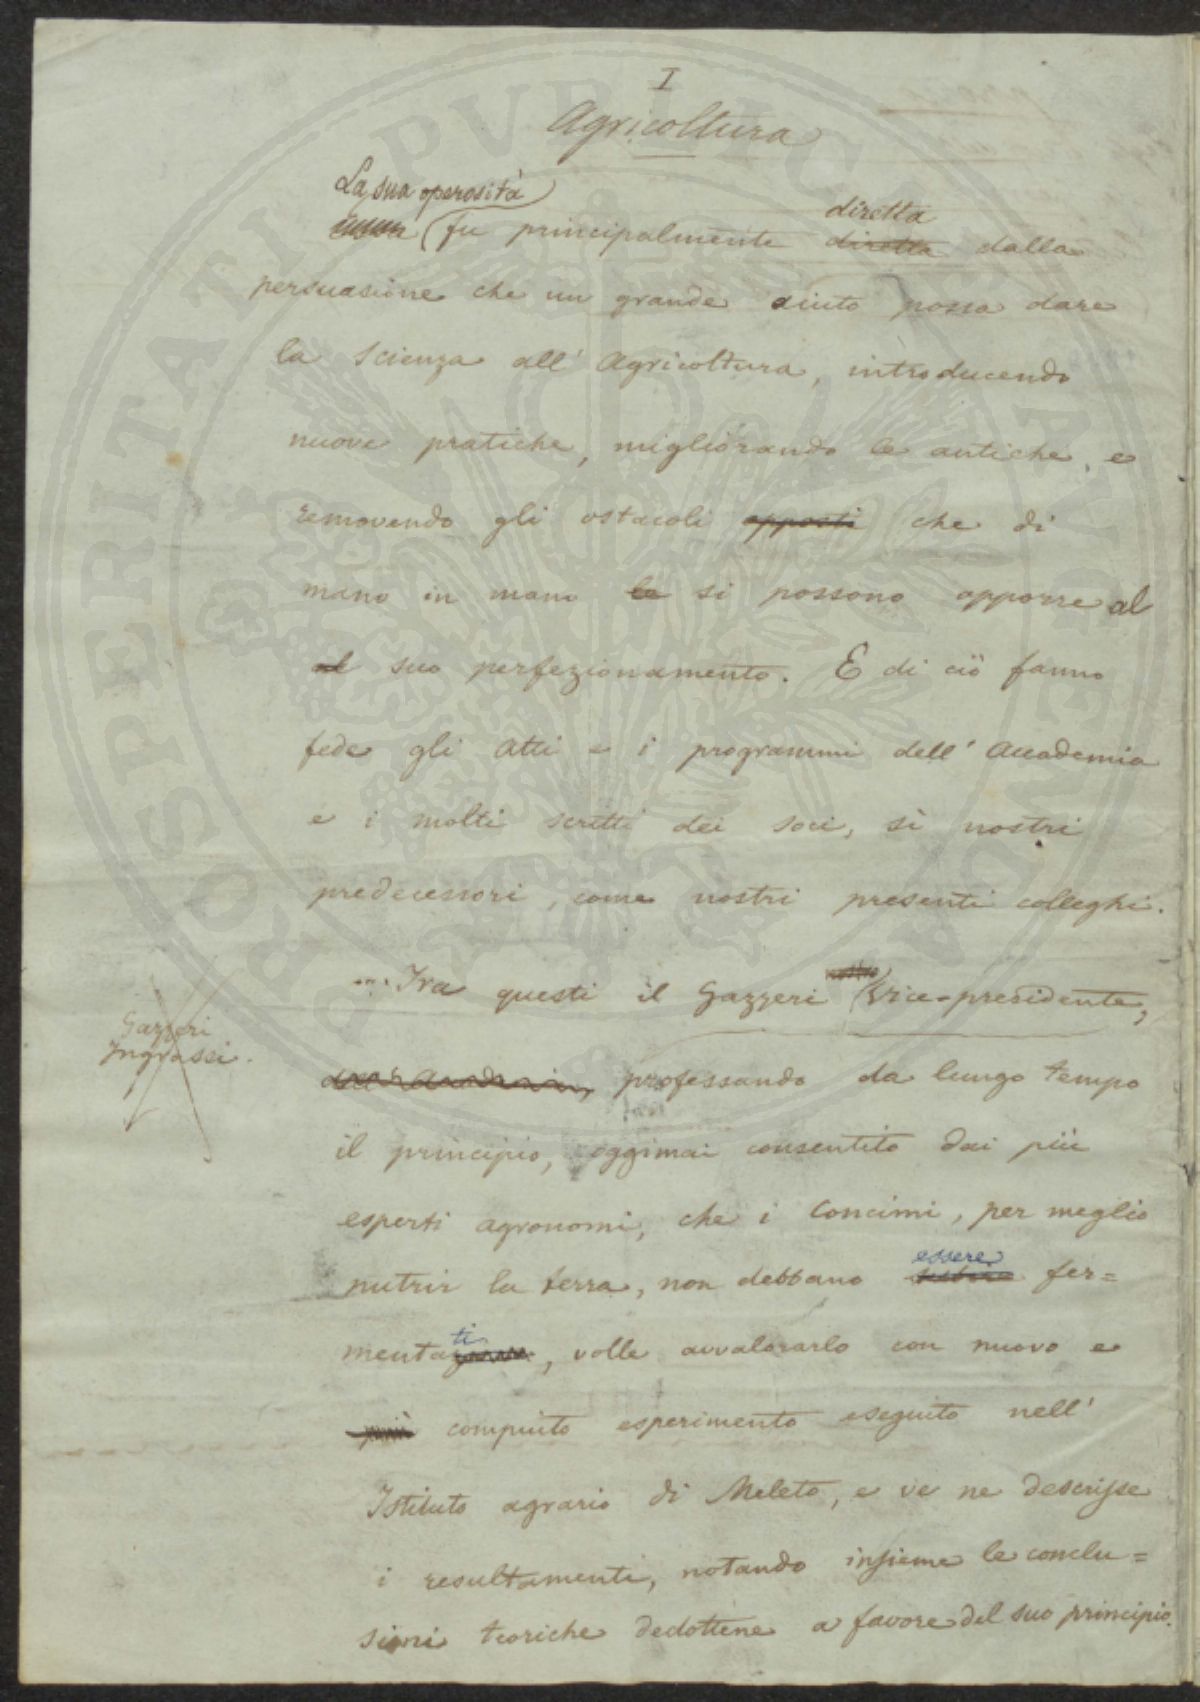 I
Agricoltura
La sua operosità
fu principalmente diretta diretta dalla
persuasione che un grande aiuto possa dare
la scienza all' Agricoltura, introducendo
nuove pratiche, migliorando le antiche, e
removendo gli ostacoli opposti che di
mano in mano le si possono opporre al
al suo perfezionamento. E di ciò fanno
fede gli Atti e i programmi dell' Accademia
e i molti scritti dei soci, sì nostri
predecessori, come nostri presenti colleghi.
Tra questi il Gazzeri nostro Vice-presidente,
Gazzeri
Ingrassi.
professando da lungo tempo
il principio, oggimai consentito dai più
esperti agronomi, che i Concimi, per meglio
nutrir la terra, non debbano essere fer=
mentati, volle avvalorarlo con nuovo e
più compiuto esperimento eseguito nell'
Istituto agrario di Meleto, e ve ne descrisse
i resultamenti, notando insieme le conclu=
sioni teoriche dedottene a favore del suo principio.
PROSPERITATI PVBLICAE AVGENDAE